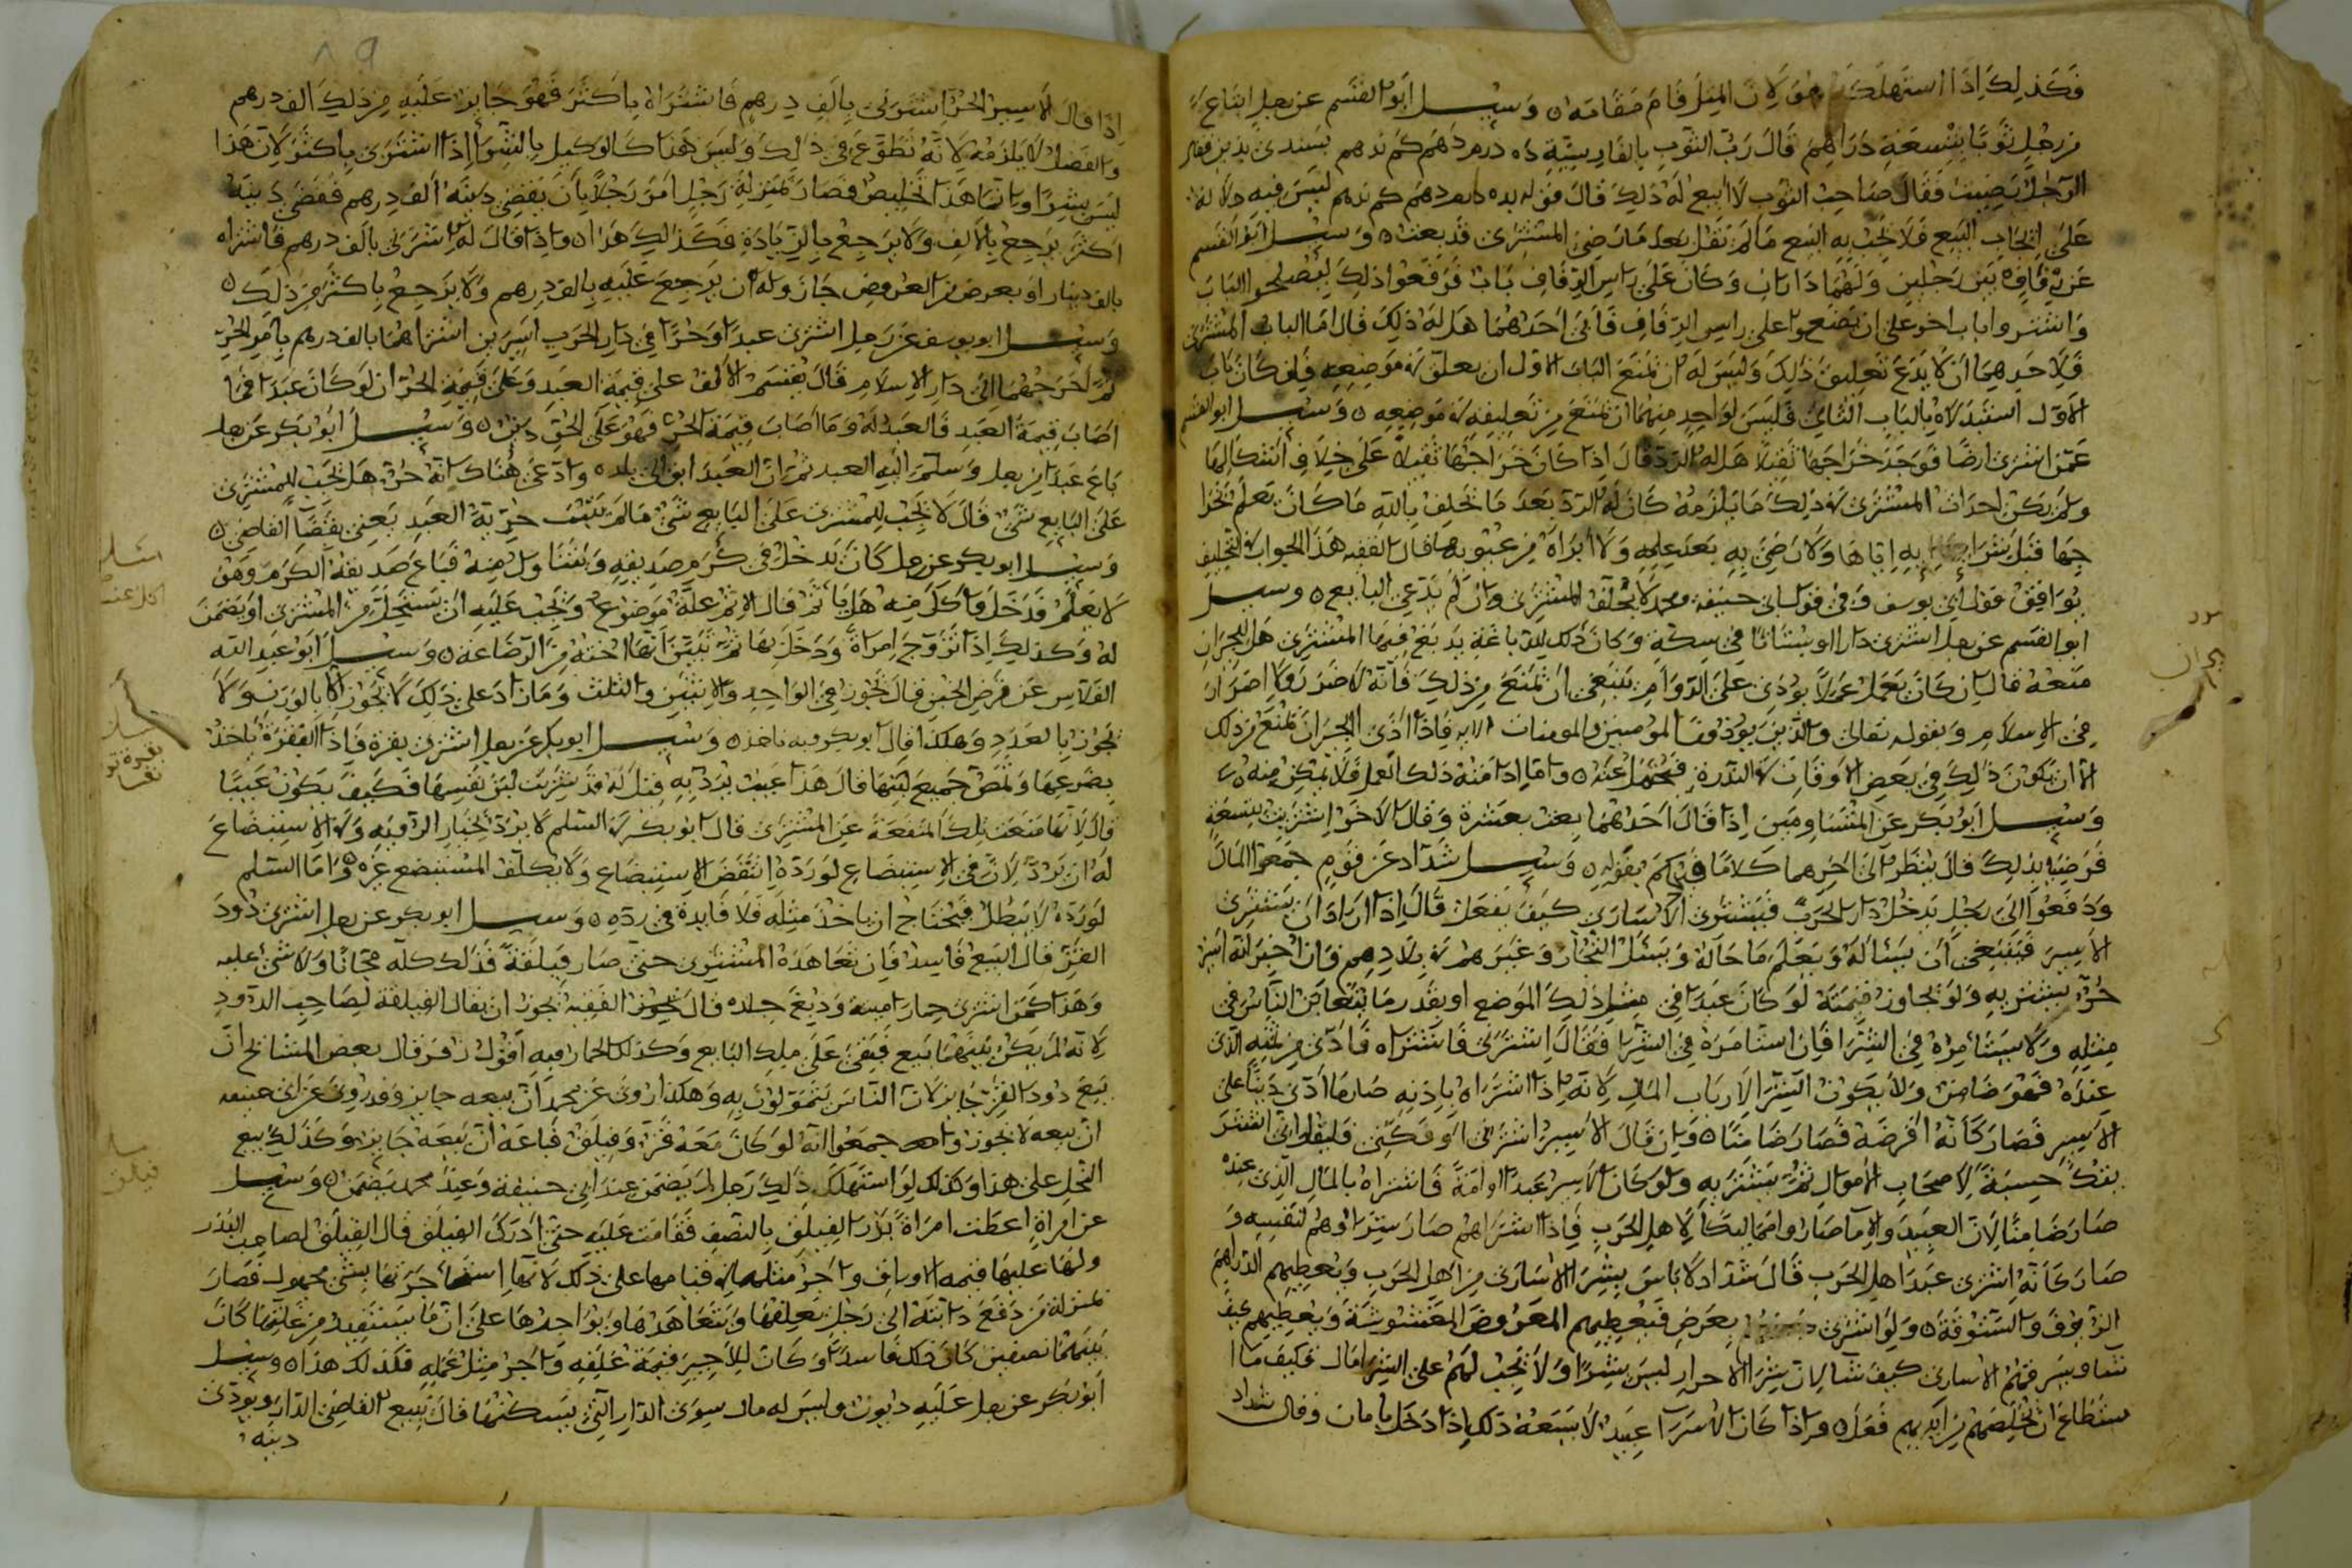 فكذلك اذا استهلك لان المثل قام مقامه وسئل ابو القسم عن رجل ابتاع
من رجل ثوبا بتسعة دراهم قال رب الثوب بالفارسية ده درم
الرجل رضيت فقال صاحب الثوب لا ابيع له ذلك قال قوله ليس فيه دلالة
على ايجاب البيع فلا يجب به البيع ما لم يقل بعد ما رضي المشتري قد بعت وسئل ابو القسم
عن زقاق بين رجلين ولهما داران وكان على راس الزقاق باب فرفعوا ذلك ليصلحوا الباب
واشتروا بابا اخر على ان يضعوا على راس الزقاق فابى احدهما هل له ذلك قال اما الباب المشترى
فلاحدهما ان لا يدع تعليق ذلك وليس له ان يمنع الباب الاول ان يعلق في موضعه فان كان باب
الاول استبدلاه بالباب الثاني فليس لواحد منهما ان يمنع من تعليقه في موضعه وسئل ابو القسم
عمن اشترى ارضا فوجد خراجها ثقيلا هل له الرد قال اذا كان خراجها ثقيلا على خلاف اشكالها
ولم يكن احداث المشتري في ذلك ما يلزمه كان له الرد بعد ما يحلف بالله ما كان تعلم بخرا
جها قبل شرا به اياها ولا رضي به بعد علمه ولا ابراه من عيوبها قال الفقيه هذا الجواب في التحليف
يوافق قول ابي يوسف وفي قول ابي حنيفة ومحمد لا يحلف المشتري وان لم يدعي البايع وسئل
ابو القسم عن رجل اشترى دارا او بستانا في سكة وكان ذلك للدباغة يدبغ فيها المشتري هل للجيران
منعه قال ان كان يعمل عملا يؤذي على الدوام ينبغي ان يمنع من ذلك فانه لا ضرر ولا اضرار
في الاسلام وبقوله تعالى والذين يؤذون المومنين والمومنات الايه فاذا اذى الجيران يمنع من ذلك
الا ان يكون ذلك في بعض الاوقات في الندرة فيحمل عنه واما اذا امنة ذلك العمل فلا يمكن منه
وسئل ابو بكر عن المتساومين اذا قال احدهما بعت بعشرة وقال الاخر اشتريت بتسعة
فرضيا بذلك قال ينظر الى اخرهما كلاما فيحكم بقوله وسئل شداد عن قوم جمعوا المال
ودفعوا الى رجل يدخل دار الحرب فيشتري الاسارى كيف يفعل قال اذا اراد ان يشتري
الاسير فينبغي ان يساله ويعلم ما حاله ويسئل التجار وغيرهم في بلادهم فان اخبر انه اسير
حر يشتر به ولو يجاوز قيمته لو كان عبدا في مثل ذلك الموضع او بقدر ما يتغابن الناس في
مثله ولا يستامره في الشرا فان استامره في الشرا فقال اشترني فاشتراه فادى من ثمنه الذي
عنده فهو ضامن ولا يكون الشرا لارباب المال لانه اذا اشتراه باذنه صار ما ادى دينا على
الاسير فصار كانه اقرضه فصار ضامنا وان قال الاسير اشترني او فكني فليقل اني اشتر
بفك حسبة لاصحاب الاموال ثم يشتر به ولو كان الاسير عبدا او امة فاشتراه بالمال الذي عنده
صار ضامنا لان العبيد والاما صاروا مماليكا لاهل الحرب فاذا اشتراهم صار مشتراوهم لنفسه و
صار كانه اشترى عبدا اهل الحرب قال شداد لا باس بشرا الاسارى من اهل الحرب ويعطيهم الدراهم
الزيوف والستوقة ولو اشترى بعرض فيعطيهم المعروض المغشوشة ويعطيهم كيف
شا ويسرقهم الاسارى كيف شا لان شرا الاحرار ليس بشرا ولا يجب لهم على الشرا مال فكيف ما ا
ستطاع ان يخلصهم من ايديهم فعل واذا كان الاسرا عبيد لا يسعه ذلك اذا دخل بامان وقال شداد
اذا قال الاسير الحر اشترني بالف درهم فاشتراه باكثر فهو جايز عليه من ذلك الف درهم
والفضل لا يلزمه لانه تطوع في ذلك وليس هذا كالوكيل بالشرا اذا اشترى باكثر لان هذا
ليس بشرا وانما هذا تخليص فصار بمنزلة رجل امر رجلا بان يقضي دينه الف درهم فقضى دينه
اكثر يرجع بالالف ولا يرجع بالزيادة فكذلك هذا واذا قال له اشترني بالف درهم فاشتراه
بالف دينار او بعوض من العروض جاز وله ان يرجع عليه بالف درهم ولا يرجع باكثر من ذلك
وسئل ابو يوسف عن رجل اشترى عبدا وحرا في دار الحرب اسيرين اشتراهما بالف درهم بامر الحر
ثم اخرجهما الى دار الاسلام قال يقسم الالف على قيمة العبد وعلى قيمة الحر ان لو كان عبدا فما
اصاب قيمة العبد فالعبد له وما اصاب قيمة الحر فهو على الحر دين وسئل ابو بكر عن رجل
باع عبدا من رجل وسلم اليه العبد ثم ان العبد ابق الى بلده وادعى هناك انه حر هل يجب للمشتري
على البايع شي قال لا يجب للمشتري على البايع شي ما لم يثبت حرية العبد يعني بقضا القاضي
وسئل ابو بكر عن رجل كان يدخل في كرم صديقه ويتناول منه فباع صديقه الكرم وهو
لا يعلم فدخل واكل منه هل ياثم قال الاثم عنه موضوع ويجب عليه ان يستحل من المشتري او يضمن
له وكذلك اذا تزوج امراة ودخل بها ثم تبين انها اخته من الرضاعة وسئل ابو عبد الله
القلاس عن قرض الخبز قال يجوز في الواحد والاثنين والثلث وما زاد على ذلك لا يجوز الا بالوزن ولا
يجوز بالعدد وهكذا قال ابو بكر وبه ناخذ وسئل ابو بكر عن رجل اشترى بقرة فاذا البقرة تاخذ
بضرعها وتمص جميع لبنها قال هذا عيب يرد به قيل له قد شربت لبن نفسها فكيف يكون عيبا
قال لانها منعت تلك المنفعة عن المشتري قال ابو بكر في السلم لا يرد بخيار الروية وله الاستبضاع
له ان يرد لان في الاستبضاع لو رده انتقض الاستبضاع ولا يكلف المستبضع غيره واما السلم
لو رده لا يبطل فيحتاج ان ياخذ مثله فلا فايدة في رده وسئل ابو بكر عن رجل اشترى دود
القز قال البيع فاسد فان تعاهده المشتري حتى صار فيلقة فذلك كله مجانا ولا شي عليه
وهذا كمن اشترى حمارا ميتة ودبغ جلده قال الفقيه يجوز ان يقال الفيلقة لصاحب الدود
لانه لم يكن بينهما بيع فبقى على ملك البايع وكذلك الحمار فيه اقول زفر قال بعض المشايخ ان
بيع دود القز جايز لان الناس يتمولون به وهكذا روى عن محمد ان بيعه جايز وقد روي عن ابي حنيفه
ان بيعه لا يجوز واجمعوا انه لو كان معه قز وفيلق فباعه ان بيعه جايز وكذلك بيع
النحل على هذا وكذلك لو استهلك ذلك رجل لم يضمن عند ابي حنيفة وعند محمد يضمن وسئل
عن امراة اعطت امراة بذر الفيلق بالنصف فقامت عليه حتى ادرك الفيلق قال الفيلق لصاحب البذر
ولها عليها قيمه الاوراق واجر مثلها في قيامها على ذلك لانها استاجرتها بشي مجهول فصار
بمنزلة من دفع دابته الى رجل يعلفها ويتعاهدها ويؤاجرها على ان ما يستفيد من غلتها كان
بينهما نصفين كان ذلك فاسدا وكان للاجير قيمة علفه واجر مثل عمله فكذلك هذا وسئل
ابو بكر عن رجل عليه ديون وليس له مال سوى الدار التي يسكنها قال يبيع القاضي الدار ويودي
دينه